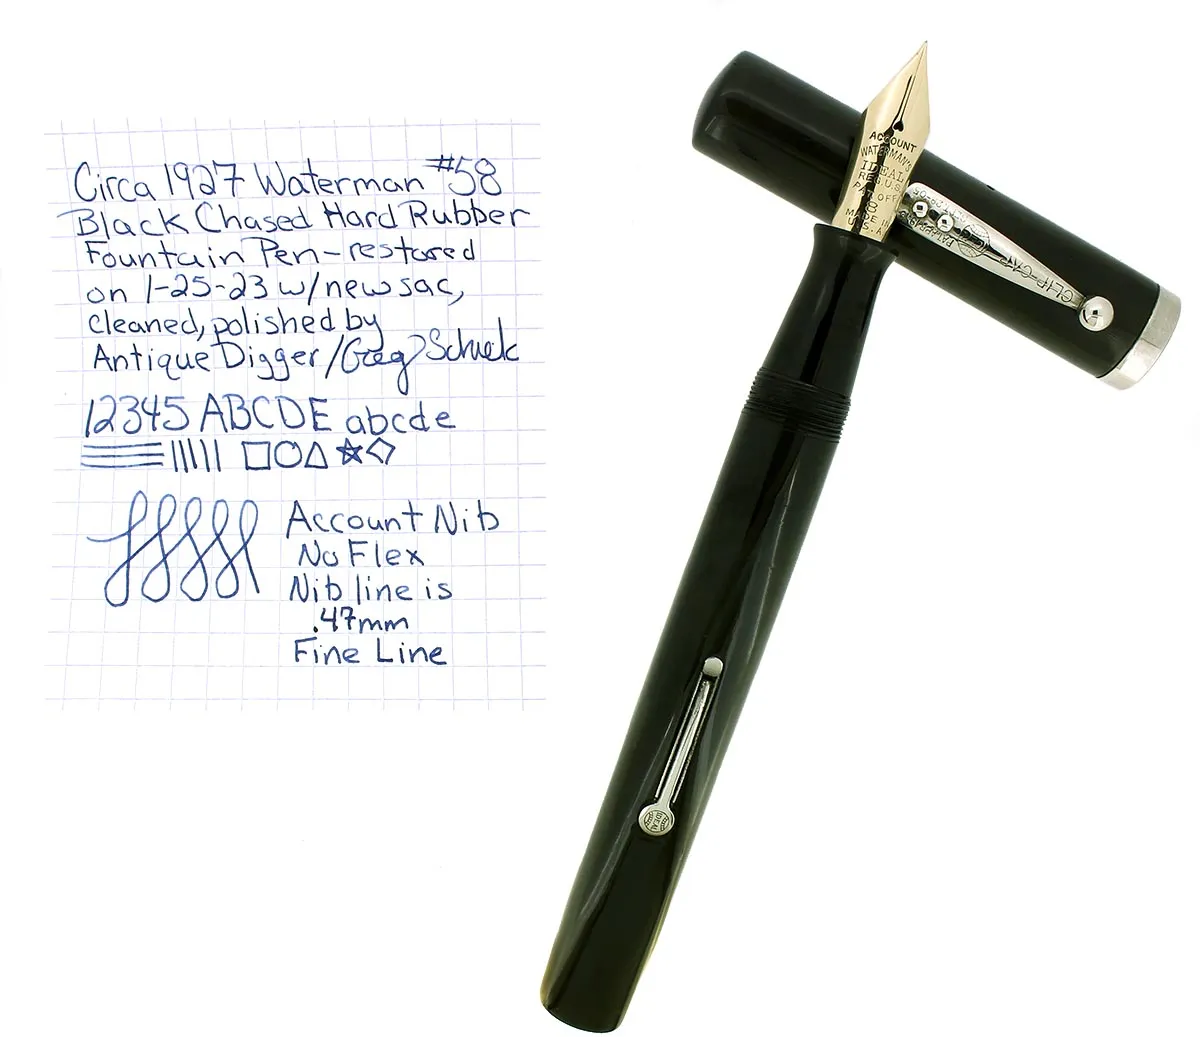 Circa 1927 Waterman #58
Black Chased Hard Rubber
Fountain Pen-restored
on 1-25-23 w/new sac,
cleaned, polished by
Antique Digger/Greg
12345 ABCDE abcde
Account Nib
No Flex
Nib line is
.47mm
Fine Line
ACCOUNT
WATERMAN'S
IDEAL
REG.U.S.
PAT. OFF.
8
MADE IN
U.S.A.
CLIP-CAP
IDEAL